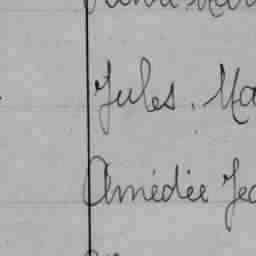 Jules. Ma
Amédée Jea